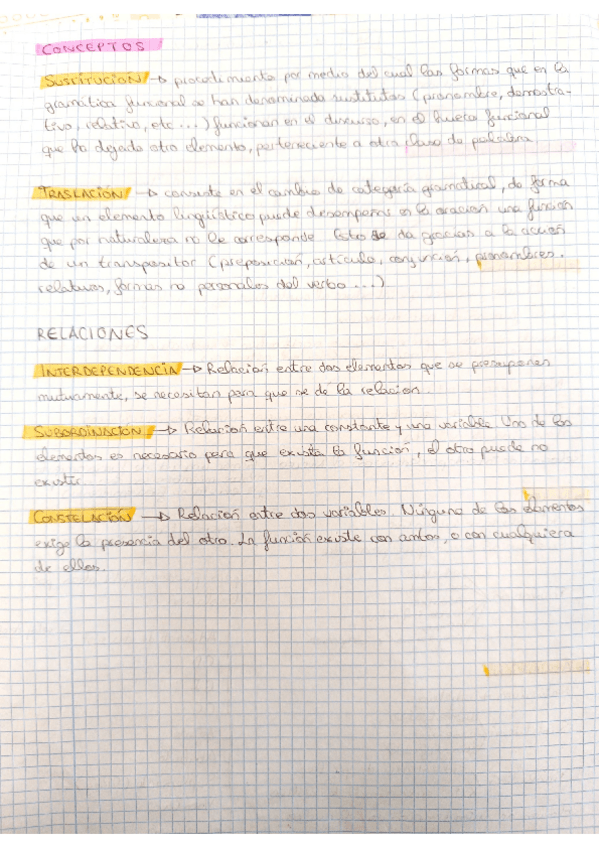 CONCEPTOS
SUSTITUCIÓN → procedimiento por medio del cual las formas que en la
gramática funcional se han denominado sustitutos (pronombre, demostra-
tivo, relativo, etc ...) funcionan en el discurso, en el hueco funcional
que ha dejado otro elemento, perteneciente a otra clase de palabra.
TRASLACIÓN → consiste en el cambio de categoría gramatical, de forma
que un elemento lingüístico puede desempeñar en la oración una función
que por naturaleza no le corresponde. Esto se da gracias a la acción
de un transpositor (preposición, artículo, conjunción, pronombres,
relativos, formas no personales del verbo ...)
RELACIONES
INTERDEPENDENCIA → Relación entre dos elementos que se presuponen
mutuamente, se necesitan para que se dé la relación.
SUBORDINACIÓN → Relación entre una constante y una variable. Uno de los
elementos es necesario para que exista la función, el otro puede no
existir.
CONSTELACIÓN → Relación entre dos variables. Ninguno de los elementos
exige la presencia del otro. La función existe con ambos, o con cualquiera
de ellos.